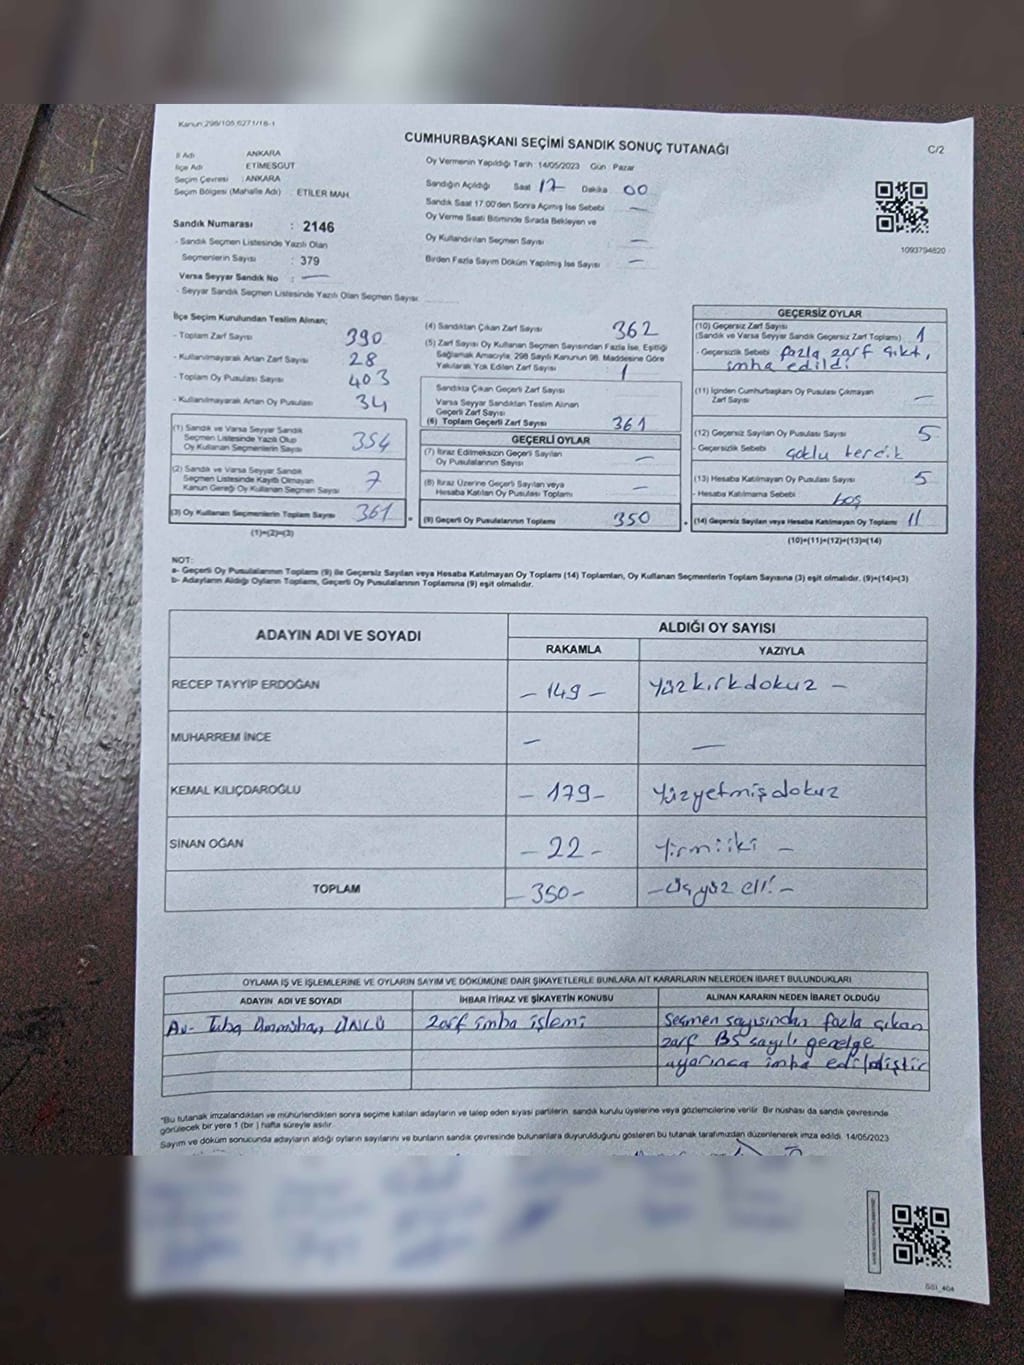 Kanun 298/105,6271/18-1
CUMHURBAŞKANI SEÇİMİ SANDIK SONUÇ TUTANAĞI
C/2
İl Adı ANKARA
İlçe Adı ETİMESGUT
Seçim Çevresi : ANKARA
Seçim Bölgesi (Mahalle Adı) : ETİLER MAH.
Oy Vermenin Yapıldığı Tarih :14/05/2023 Gün : Pazar
Sandığın Açıldığı Saat 17 Dakika 00
Sandık Saat 17:00'den Sonra Açılmış İse Sebebi —
Oy Verme Saati Bitiminde Sırada Bekleyen ve
Oy Kullandırılan Seçmen Sayısı —
Birden Fazla Sayım Döküm Yapılmış İse Sayısı —
1093794820
Sandık Numarası : 2146
- Sandık Seçmen Listesinde Yazılı Olan
Seçmenlerin Sayısı : 379
Varsa Seyyar Sandık No : —
- Seyyar Sandık Seçmen Listesinde Yazılı Olan Seçmen Sayısı
İlçe Seçim Kurulundan Teslim Alınan;
- Toplam Zarf Sayısı 390
- Kullanılmayarak Artan Zarf Sayısı 28
- Toplam Oy Pusulası Sayısı 403
- Kullanılmayarak Artan Oy Pusulası 34
(1) Sandık ve Varsa Seyyar Sandık
Seçmen Listesinde Yazılı Olup
Oy Kullanan Seçmenlerin Sayısı 354
(2) Sandık ve Varsa Seyyar Sandık
Seçmen Listesinde Kayıtlı Olmayan
Kanun Gereği Oy Kullanan Seçmen Sayısı 7
(3) Oy Kullanan Seçmenlerin Toplam Sayısı 361
(1)+(2)=(3)
(4) Sandıktan Çıkan Zarf Sayısı 362
(5) Zarf Sayısı Oy Kullanan Seçmen Sayısından Fazla İse, Eşitliği
Sağlamak Amacıyla, 298 Sayılı Kanunun 98. Maddesine Göre
Yakılarak Yok Edilen Zarf Sayısı 1
Sandıkta Çıkan Geçerli Zarf Sayısı
Varsa Seyyar Sandıktan Teslim Alınan
Geçerli Zarf Sayısı
(6) Toplam Geçerli Zarf Sayısı 361
GEÇERLİ OYLAR
(7) İtiraz Edilmeksizin Geçerli Sayılan
Oy Pusulalarının Sayısı —
(8) İtiraz Üzerine Geçerli Sayılan veya
Hesaba Katılan Oy Pusulası Toplamı —
= (9) Geçerli Oy Pusulalarının Toplamı 350
GEÇERSİZ OYLAR
(10) Geçersiz Zarf Sayısı
(Sandık ve Varsa Seyyar Sandık Geçersiz Zarf Toplamı) 1
- Geçersizlik Sebebi fazla zarf çıktı,
imha edildi
(11) İçinden Cumhurbaşkanı Oy Pusulası Çıkmayan
Zarf Sayısı —
(12) Geçersiz Sayılan Oy Pusulası Sayısı 5
- Geçersizlik Sebebi çoklu tercih
(13) Hesaba Katılmayan Oy Pusulası Sayısı 5
- Hesaba Katılmama Sebebi boş
+ (14) Geçersiz Sayılan veya Hesaba Katılmayan Oy Toplamı 11
(10)+(11)+(12)+(13)=(14)
NOT:
a- Geçerli Oy Pusulalarının Toplamı (9) ile Geçersiz Sayılan veya Hesaba Katılmayan Oy Toplamı (14) Toplamları, Oy Kullanan Seçmenlerin Toplam Sayısına (3) eşit olmalıdır. (9)+(14)=(3)
b- Adayların Aldığı Oyların Toplamı, Geçerli Oy Pusulalarının Toplamına (9) eşit olmalıdır.
ADAYIN ADI VE SOYADI
ALDIĞI OY SAYISI
RAKAMLA YAZIYLA
RECEP TAYYİP ERDOĞAN – 149 – Yüzkırkdokuz –
MUHARREM İNCE – —
KEMAL KILIÇDAROĞLU – 179 – Yüzyetmişdokuz
SİNAN OĞAN – 22 – Yirmiiki –
TOPLAM – 350 – – Üçyüz elli –
OYLAMA İŞ VE İŞLEMLERİNE VE OYLARIN SAYIM VE DÖKÜMÜNE DAİR ŞİKAYETLERLE BUNLARA AİT KARARLARIN NELERDEN İBARET BULUNDUKLARI
ADAYIN ADI VE SOYADI İHBAR İTİRAZ VE ŞİKAYETİN KONUSU ALINAN KARARIN NEDEN İBARET OLDUĞU
Av. Tuba zarf imha işlemi Seçmen sayısından fazla çıkan
zarf sayılı genelge
uyarınca imha edilmiştir
"Bu tutanak imzalandıktan ve mühürlendikten sonra seçime katılan adayların ve talep eden siyasi partilerin, sandık kurulu üyelerine veya gözlemcilerine verilir. Bir nüshası da sandık çevresinde
görülecek bir yere 1 (bir ) hafta süreyle asılır.
Sayım ve döküm sonucunda adayların aldığı oyların sayılarını ve bunların sandık çevresinde bulunanlara duyurulduğunu gösteren bu tutanak tarafımızdan düzenlenerek imza edildi. 14/05/2023